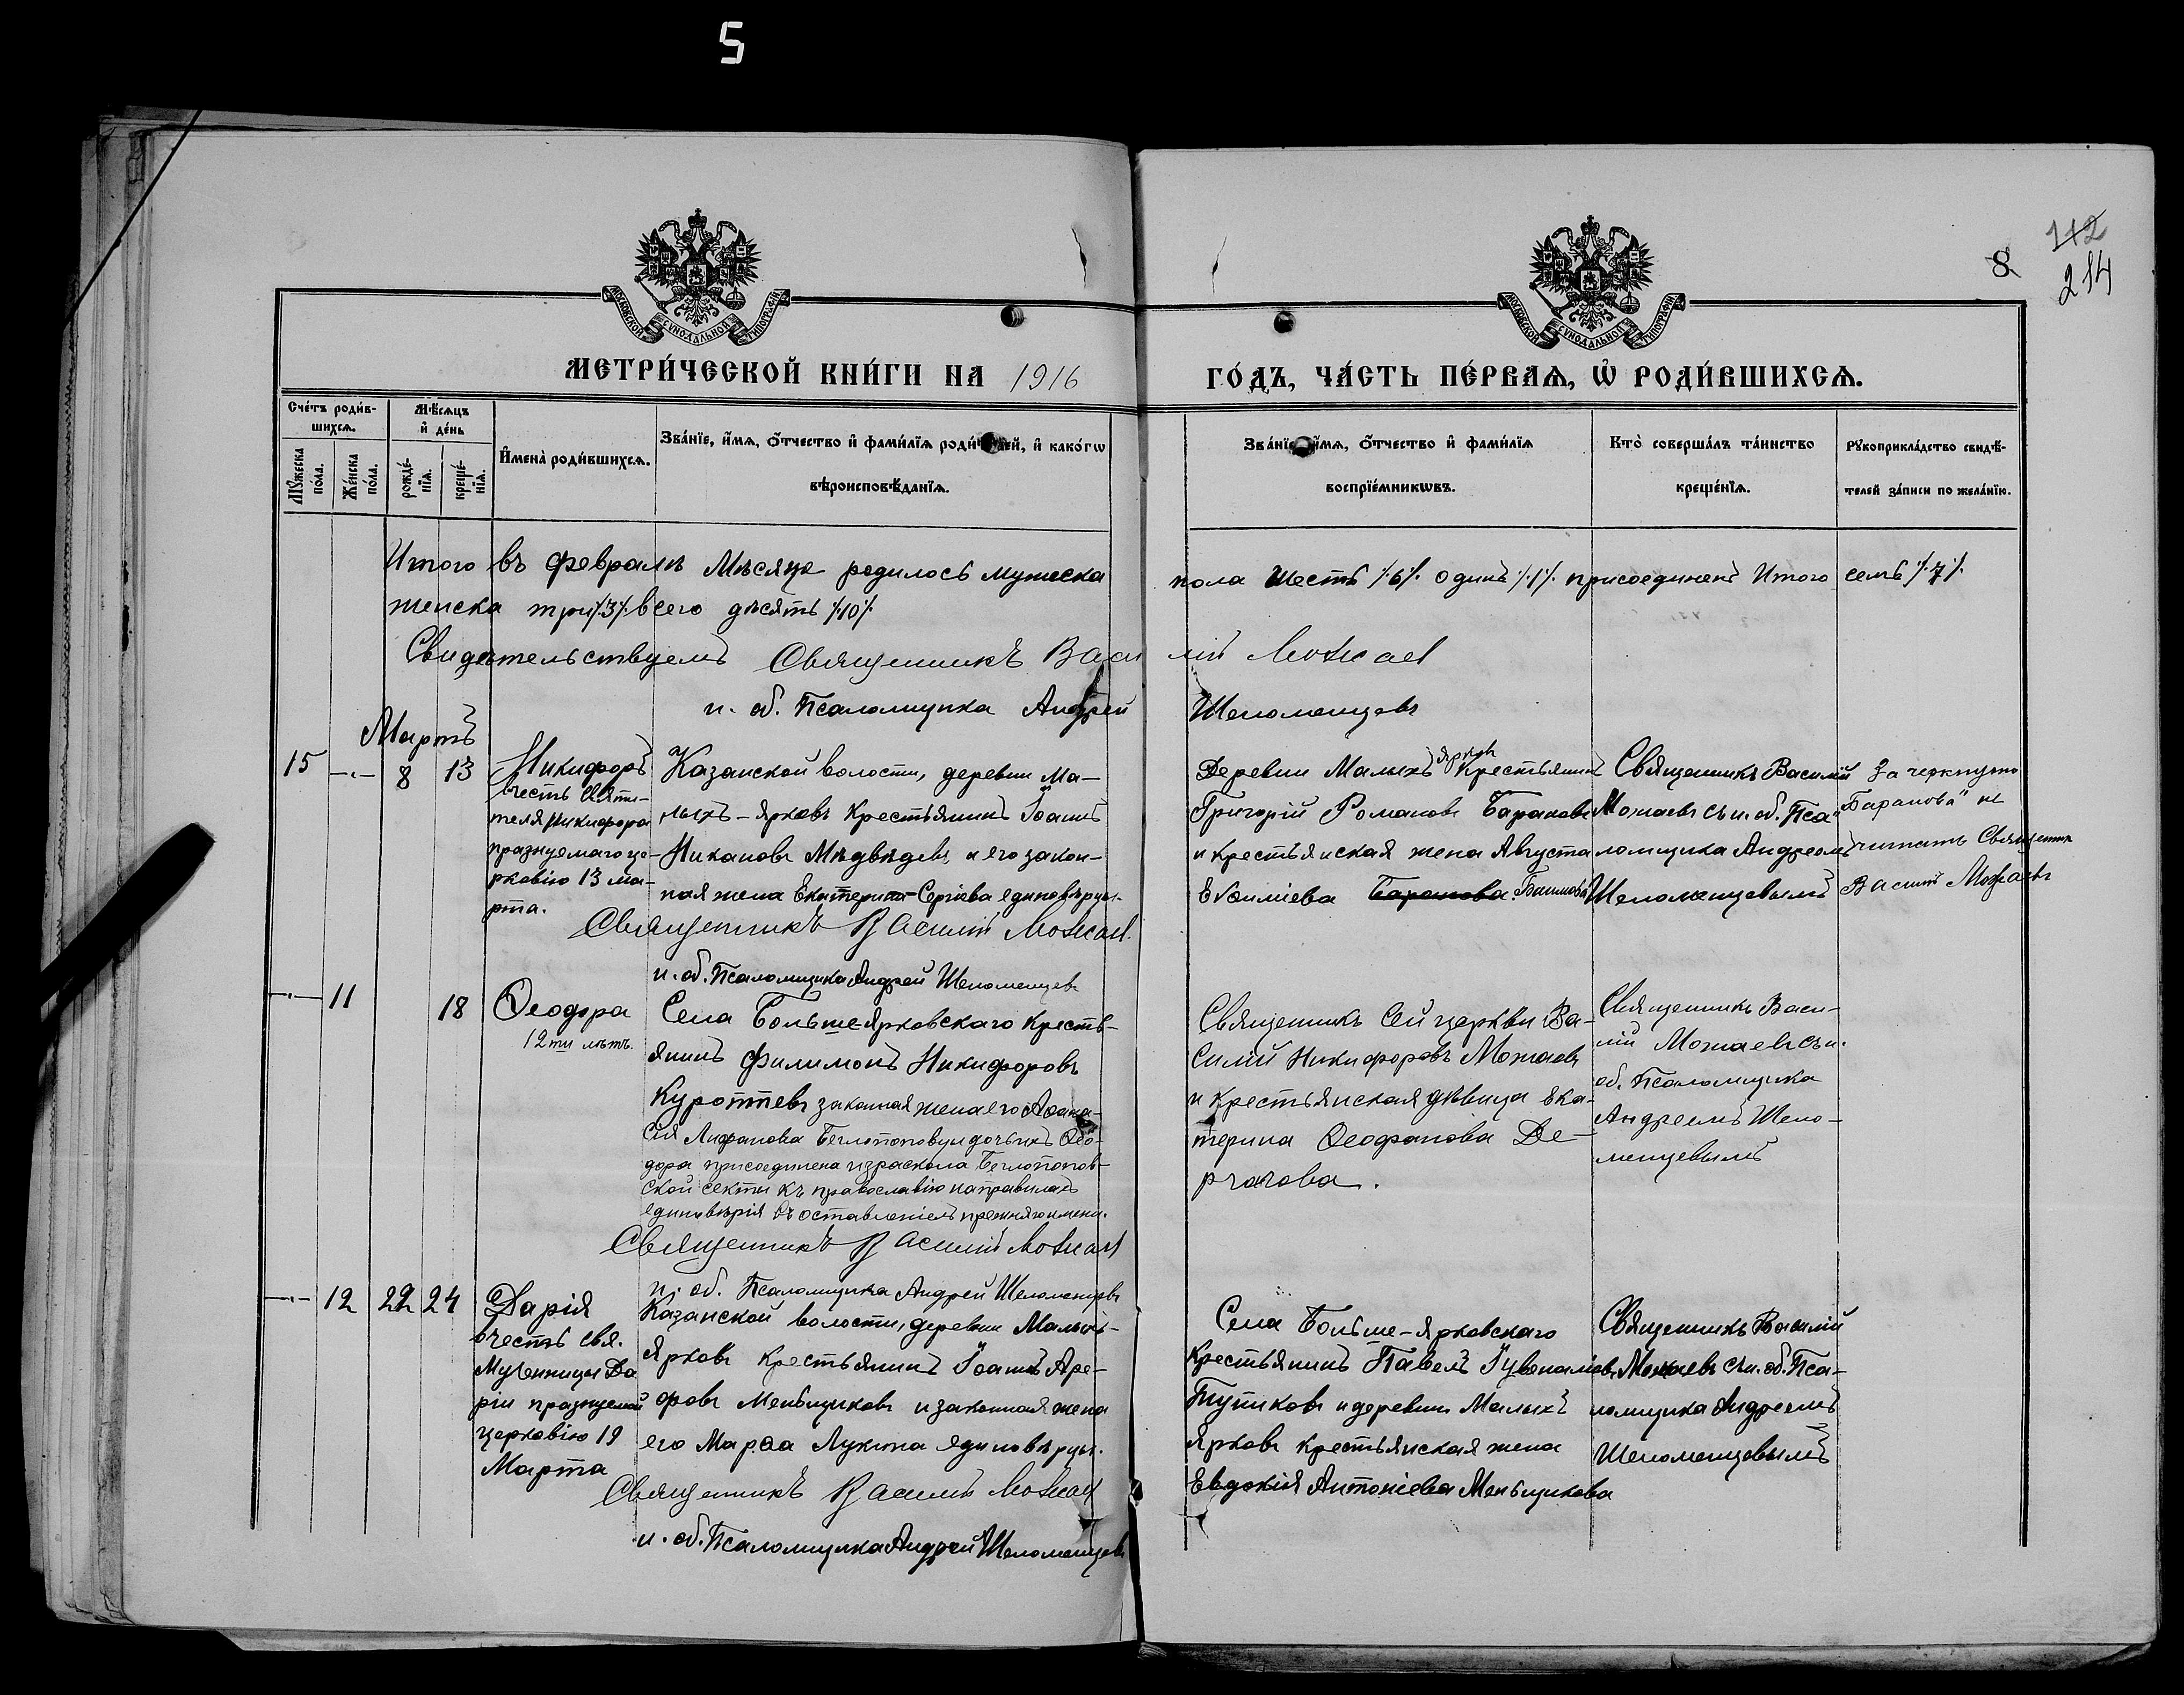 5
112
8
214
МОСКОВСКОЙ СѴНОДАЛЬНОЙ ТИПОГРАФІИ
МОСКОВСКОЙ СѴНОДАЛЬНОЙ ТИПОГРАФІИ
МЕТРИ́ЧЕСКОЙ КНИ́ГИ НА 1916
ГО́ДЪ, ЧА́СТЬ ПЕ́РВАѦ, Ѡ҆ РОДИ́ВШИХСѦ.
Сче́тъ роди́в-
шихсѧ.
Мꙋ́жеска по́ла.
Же́нска по́ла.
Мѣ́сѧцъ
и҆ де́нь
рожде́-
нїѧ.
креще́-
нїѧ.
И҆мена̀ роди́вшихсѧ.
Зва́нїе, и҆́мѧ, ѻ҆́тчество и҆ фами́лїѧ роди́телей, и҆ како́гѡ
вѣроисповѣ́данїѧ.
Зва́нїе, и҆́мѧ, ѻ҆́тчество и҆ фами́лїѧ
воспрїе́мникѡвъ.
Кто̀ соверша́лъ та́инство
креще́нїѧ.
Рꙋкоприкла́дство свидѣ́-
телей за́писи по жела́нїю.
Итого въ февралѣ мѣсяцѣ родилось мужеска
пола шесть /6/. одинъ /1/. присоединенъ Итого семь /7/.
женска три /3/ всего дѣсять /10/
Свидѣтельствуемъ Священникъ Василій Можаев
и. об. Псаломщика Андрей Шеломенцевъ
Мартъ
15 -"- 8 13
Никифоръ
вчесть Святи-
теля Никифора
празнуемаго це-
рковію 13 ма-
рта.
Казанской волости, деревни Ма-
лыхъ-Ярковъ Крестьянинъ Іоаннъ
Никановъ Мѣдвѣдевъ и его закон-
ная жена Екатерина Сергіева единовѣрцы.
Священникъ Василій Можаев.
и. об. Псаломщика Андрей Шеломенцевъ
Деревни Малыхъ Ярковъ Крестьянинъ
Григорій Романовъ Барановъ
и крестьянская жена Августа
Евѳиміева Баранова
Священникъ Василій
Можаевъ съ и. об. Пса-
ломщика Андреемъ
Шеломенцевымъ
Зачеркнуто
"Баранова" не
читать Священникъ
Василій Можаевъ
-"- 11 18
Ѳеодора
12ти лѣтъ.
Села Больше-Ярковскаго Кресть-
янинъ Филимонъ Никифоровъ
законная жена его Аѳана-
сія Беглопоповцы дочь ихъ Ѳео-
дора присоединена израскола Беглопопов-
ской секты къ православію на правилахъ
единовѣрія съ оставленіемъ прежняго имени.
Священникъ Василій Можаев
и. об. Псаломщика Андрей Шеломенцевъ
Священникъ Сей церкви Ва-
силій Никифоровъ Можаевъ
и крестьянская дѣвица Ека-
терина Ѳеофанова Де-
ргачова.
Священникъ Васи-
лій Можаевъ съ и.
об. Псаломщика
Андреемъ Шело-
менцевымъ
-"- 12 22 24
Дарія
вчесть Свя.
Мученицы Да
ріи празнуемой
церковію 19
Марта
Казанской волости, деревни Малыхъ-
Ярковъ крестьянинъ Іоаннъ Аре-
фовъ Меньщиковъ и законная жена
его Марѳа Лукина единовѣрцы.
Священникъ Василій Можаев
и. об. Псаломщика Андрей Шеломенцевъ
Села Больше-Ярковскаго
Крестьянинъ Павелъ Іувеналіевъ
Тупиковъ и деревни Малыхъ
Ярковъ крестьянская жена
Евдокія Антоніева Меньщикова
Священникъ Василій
Можаевъ съ и. об. Пса-
ломщика Андреемъ
Шеломенцевымъ